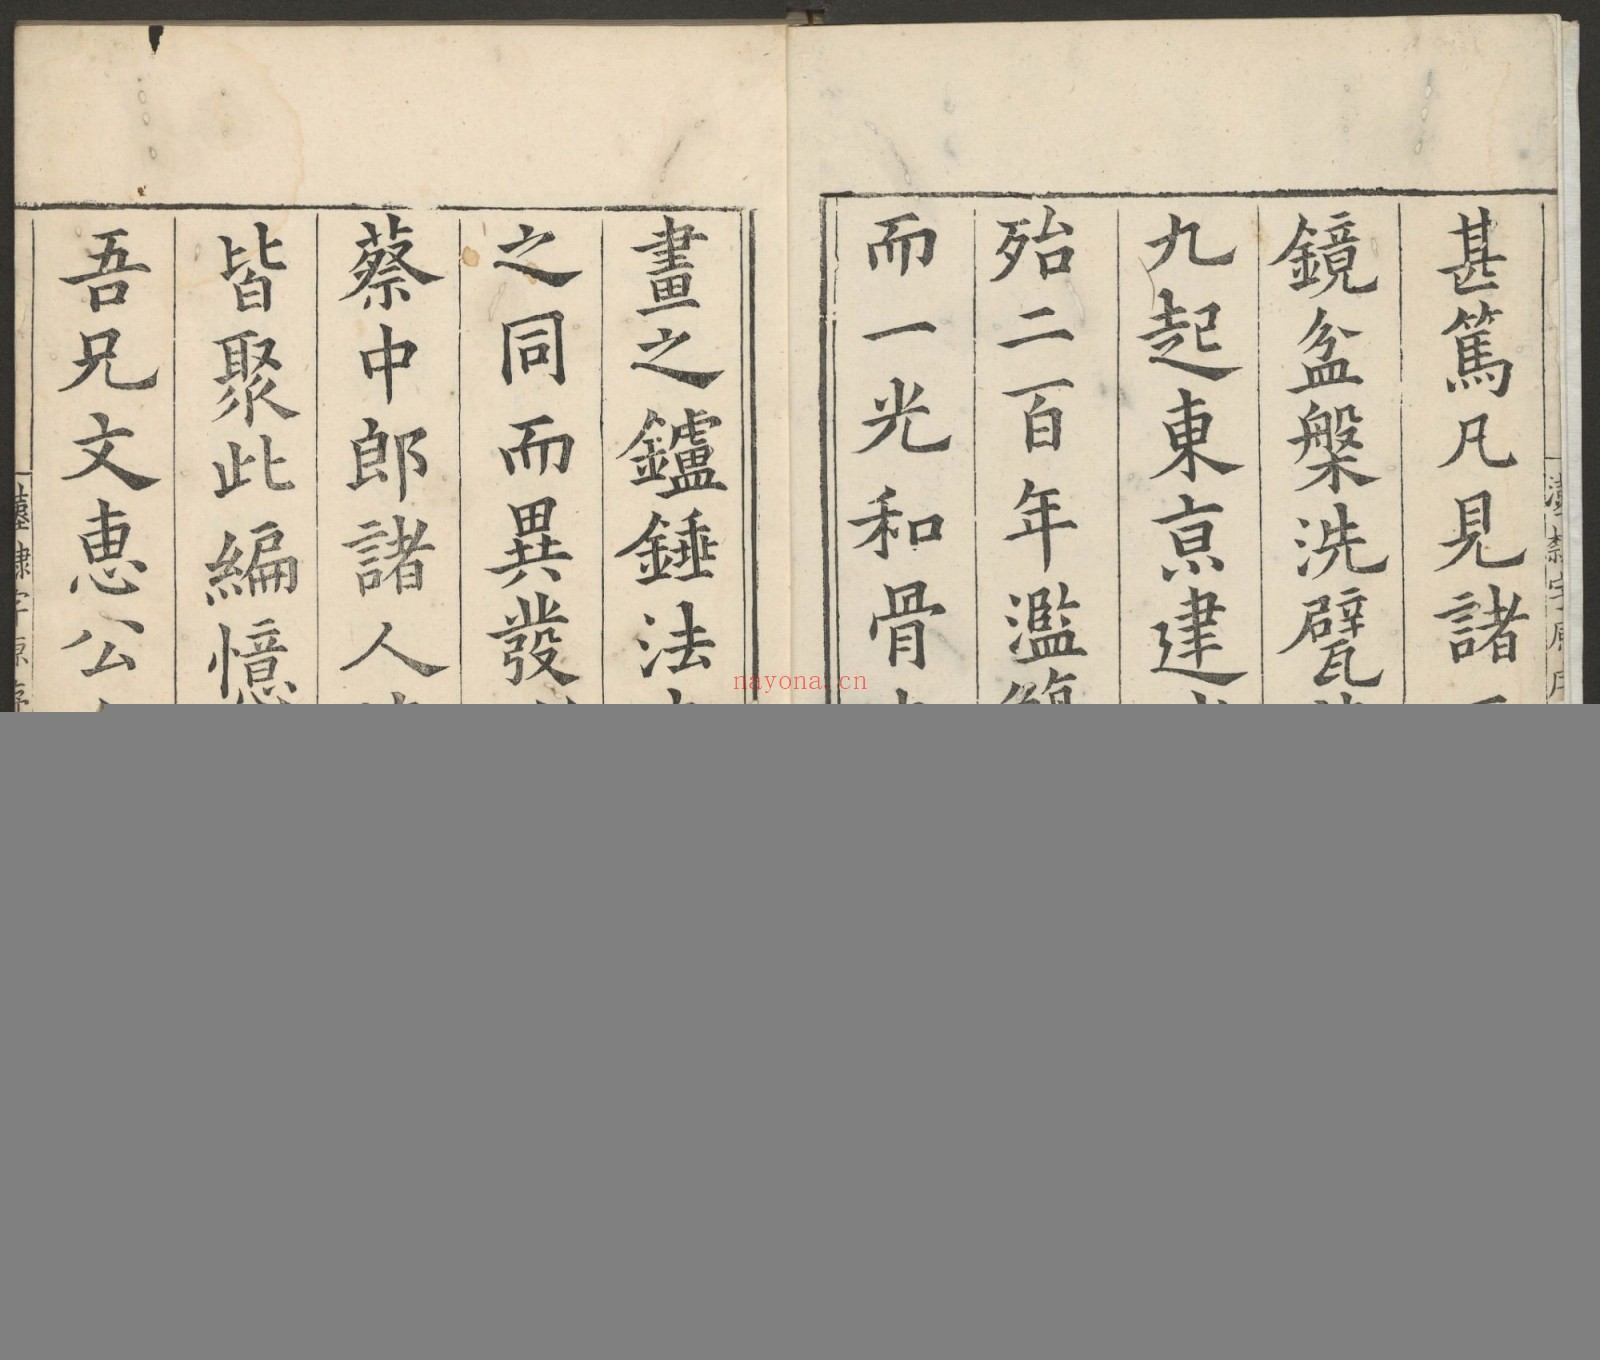 甚篤凡見諸
鏡盆槃洗甓
九起東京建
殆二百年濫
而一光和骨
畫之鑪錘法
之同而異發
蔡中郎諸人
皆聚此編憶
吾兄文惠公
nayona.cn